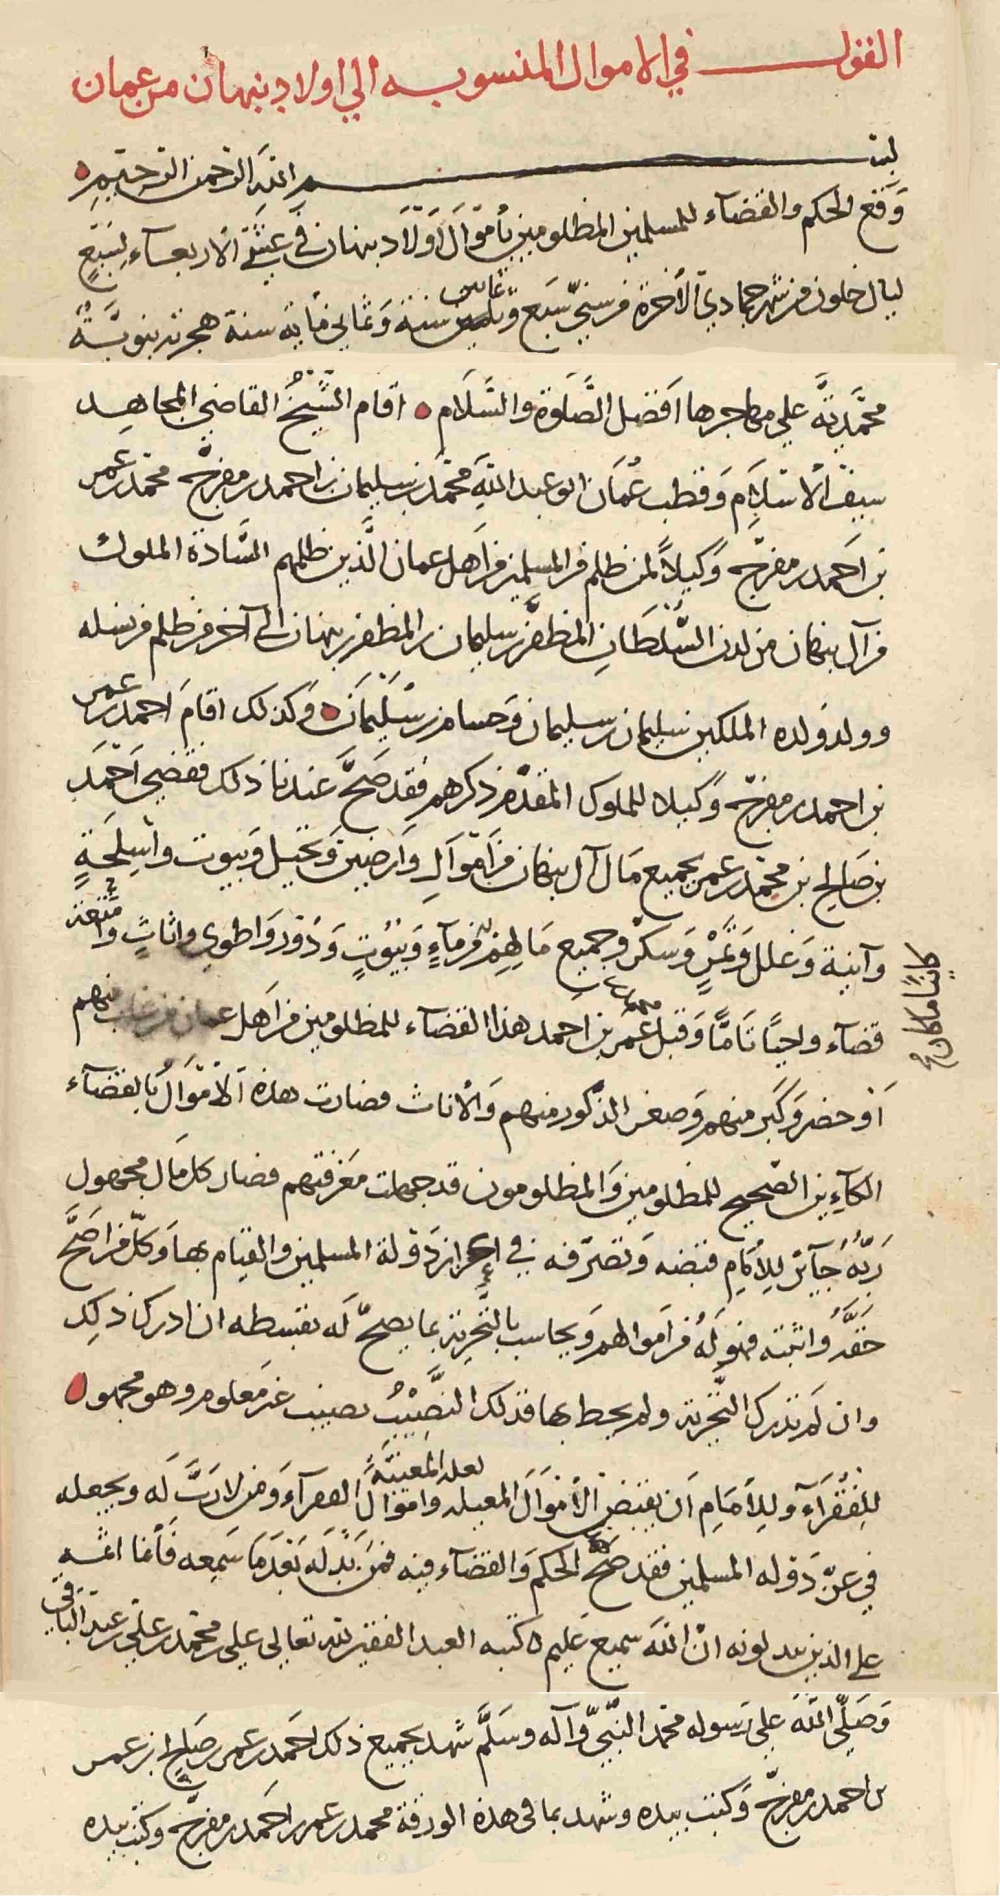 القول في الاموال المنسوبه الي اولاد نبهان من عمان
بسم الله الرحمن الرحيم
وقع الحكم والقضآء للمسلمين المظلومين بأموال أولاد نبهان في عشيّة الاربعآء لسبع
ليال خلون من شهر جمادي الأخرة من سنيّ سبع وثمانين سنة وثماني مأية سنة هجرية نبويّة
محمّديّة علي مهاجرها افضل الصّلوة والسّلام اقام الشّيخ القاضي المجاهد
سيف الاسلام وقطب عُمان ابو عبد الله محمّد بن سليمان بن احمد بن مفرجّ محمّد بن عمر
بن احمد بن مفرجّ وكيلاً لمن ظلم من المسلمين من اهل عمان الّذين ظلمهم السّادة الملوك
من آل نبهان من لدن السّلطان المظفّر بن سليمان بن المظفر بن نبهان الي آخر من ظلم من نسله
وولد ولده الملكين سليمان بن سليمان وحسام بن سليمان وكذلك اقام احمد بن عمر
بن احمد بن مفرجّ وكيلا للملوك المقدّم ذكرهم فقد صحّ عندنا ذلك فقضي احمد
بن صالح بن محمّد بن عمر بجميع مال آل نبهان من اموال وارضين ونخيل وبيوت واسلحة
وآنية وغلل وتمر وسكر وجميع مالهم من مآء وبيوت ودور واطوي واثاث وامتعة
كاينًا ما كان
قضآء واجبًا تامًّا وقبل محمد بن عمر بن احمد هذا القضآء للمظلومين من اهل عمان من غاب منهم
أو حضر وكبر منهم وصغر الذّكور منهم والأناث فصارت هذه الأموال بالقضآء
الكآءين الصّحيح للمظلومين والمظلومون قد جهلت معرفتهم فصار كل مال مجهول
ربّه جآيز للإمام قبضه وتصرّفه في اعزاز دولة المسلمين والقيام بها وكلّ من اصحّ
حقّه واثبته فهو له من اموالهم ويحاسب بالتّجزية بما يصحّ له بقسطه ان ادرك ذلك
وان لم تدرك التّجزية ولم يحط بها فذلك النّصيب نصيب غير معلوم وهو مجهول
للفقرآء وللأمام أن يقبض الأموال المعيله لعله المعينة واموال الفقرآء ومن لا ربّ له ويجعله
في عزّ دوله المسلمين فقد صحّ الحكم والقضآء فيه فمن بدّله بعد ما سمعه فأنما اثمه
علي الذين يبدلونه انّ الله سميع عليم كتبه العبد الفقير لله تعالي علي محمّد بن علي بن عبد الباقي
وصلّي الله علي رسوله محمد النّبيّ وآله وسلّم شهد بجميع ذلك احمد بن عمر بن صالح ابن عمر
بن احمد بن مفرجّ وكتب بيده وشهد بما في هذه الورقة محمد بن عمر بن احمد بن مفرجّ وكتب بيده